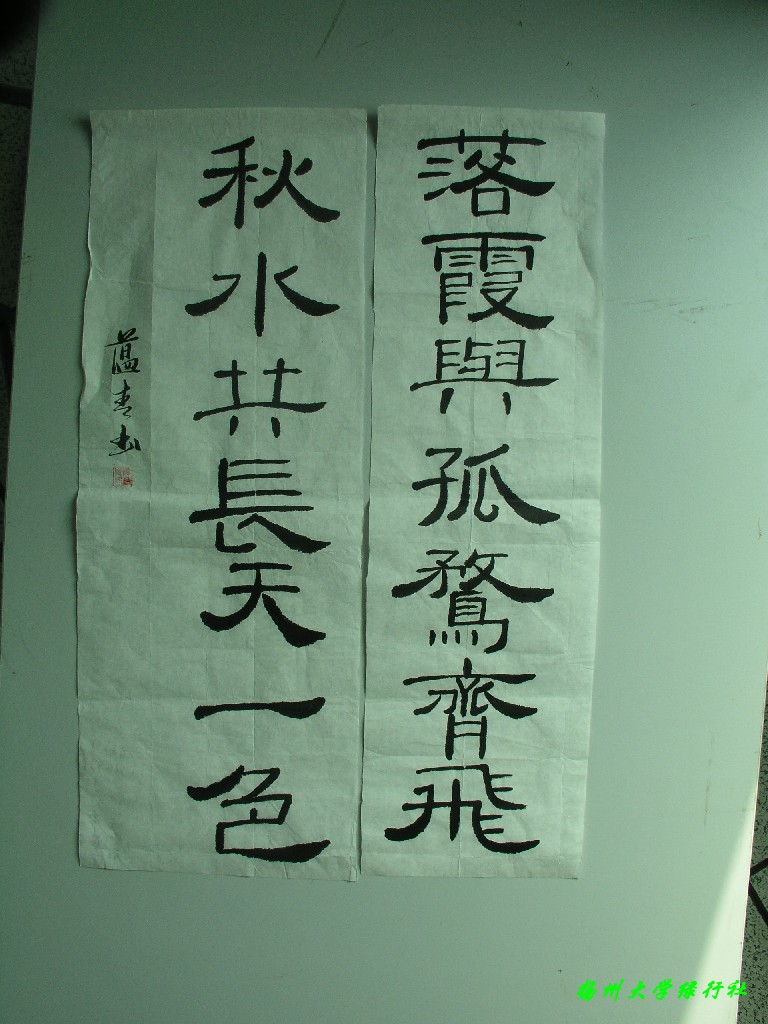 落霞與孤鶩齊飛
秋水共長天一色
蕴青书
扬州大学绿行社